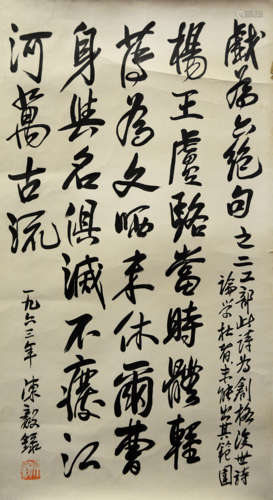 戲為六絕句之二工部此詩為創格後世詩
論学杜者未能出其範圍
楊王盧駱當時體輕
薄為文哂未休爾曹
身與名俱滅不廢江
河萬古流
一九六三年 陳毅録